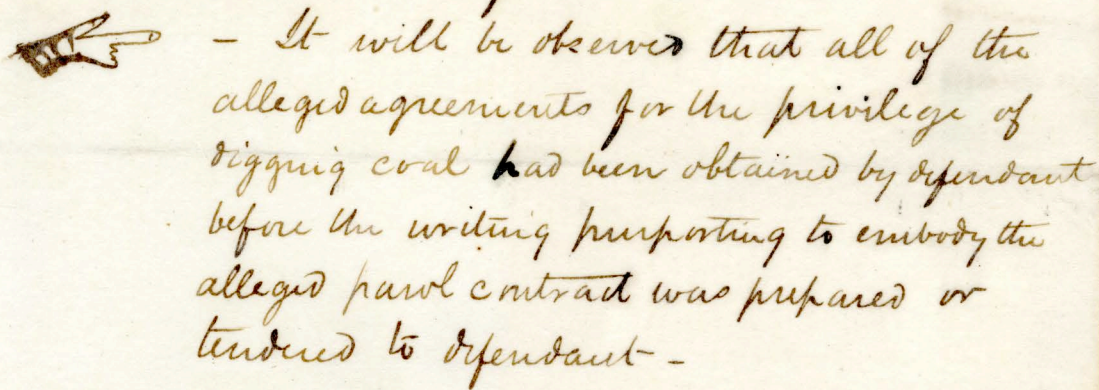 - It will be observed that all of the
alleged agreements for the privilege of
digging coal had been obtained by defendant
before the writing purporting to embody the
alleged parol contract was prepared or
tendered to defendant -